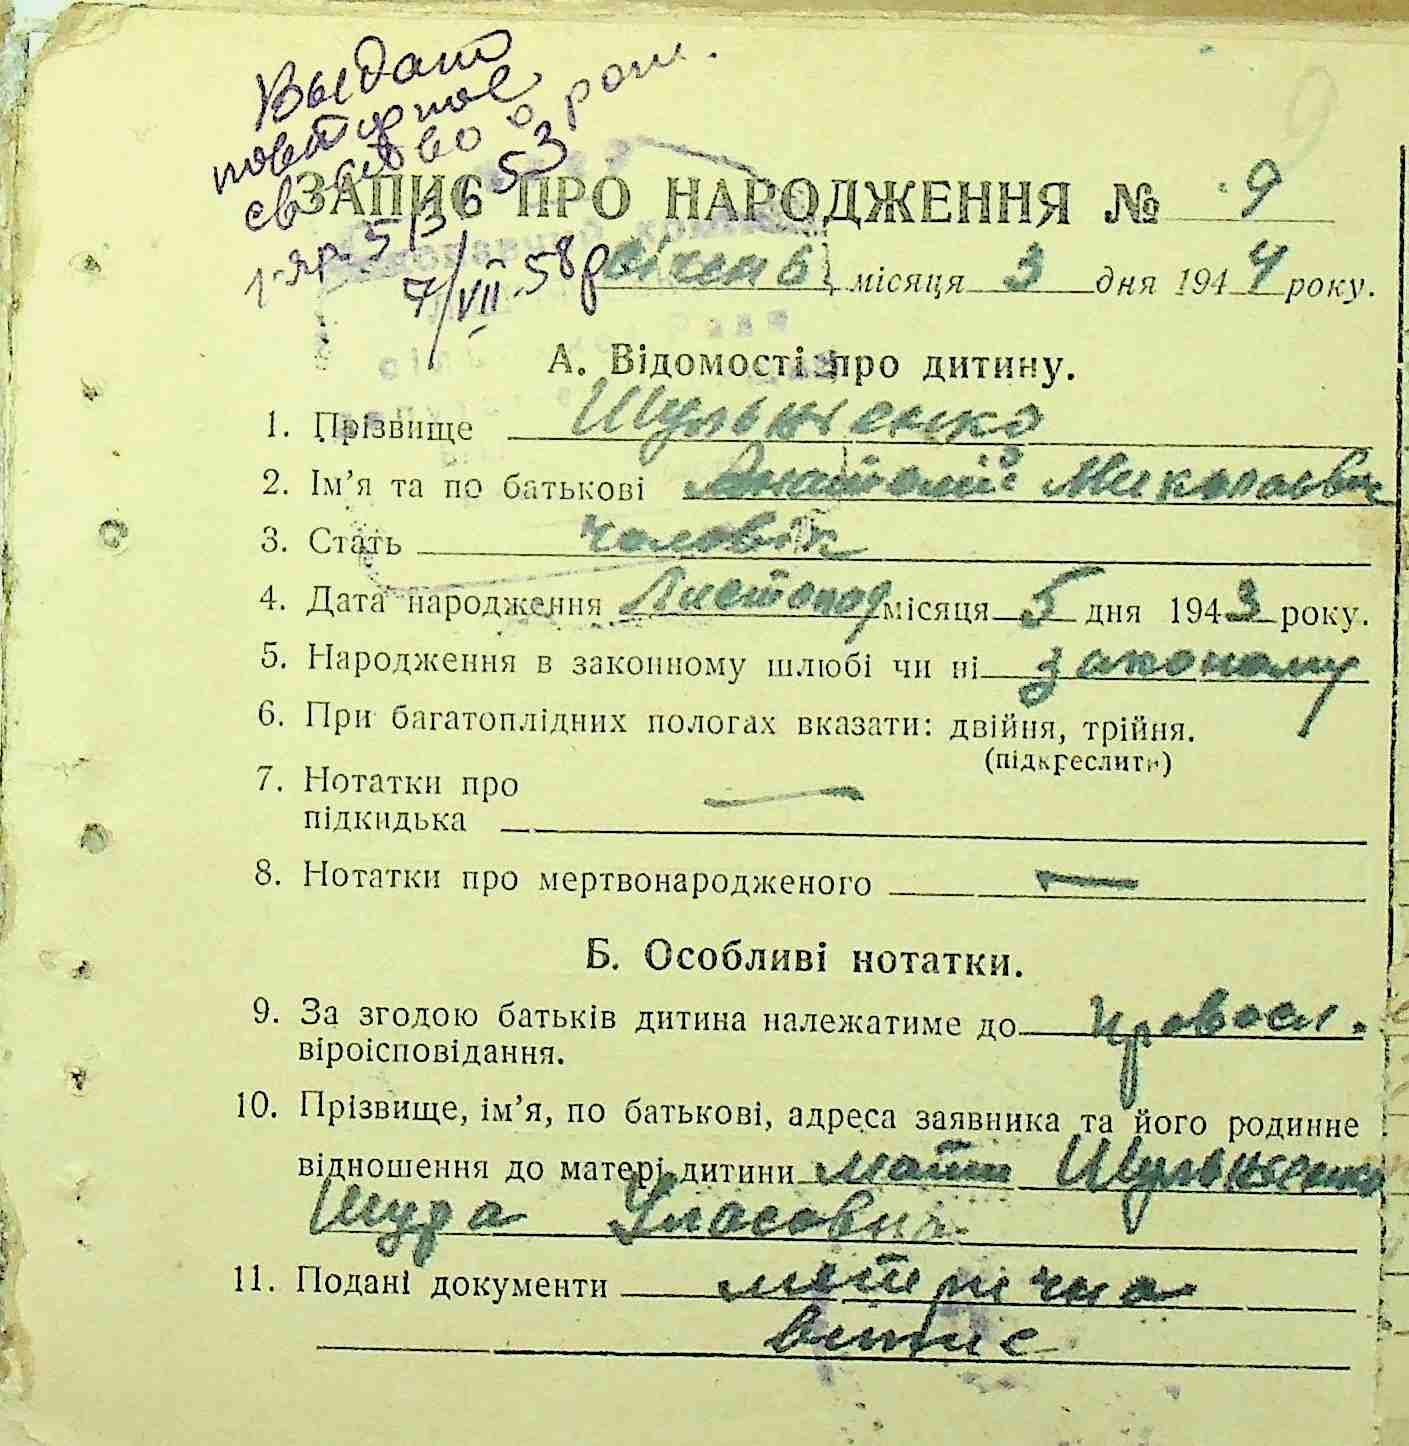 Выдано
повторное
св-во о рож.
1-яр 513653
7/VII-58р
ЗАПИС ПРО НАРОДЖЕННЯ № 9
січень місяця 3 дня 1944 року.
А. Відомості про дитину.
1. Прізвище Шульженко
2. Ім’я та по батькові Анатолій Миколаєвич
3. Стать чоловік
4. Дата народження Листопад місяця 5 дня 1943 року.
5. Народження в законному шлюбі чи ні законому
6. При багатоплідних пологах вказати: двійня, трійня.
(підкреслити)
7. Нотатки про
підкидька —
8. Нотатки про мертвонародженого —
Б. Особливі нотатки.
9. За згодою батьків дитина належатиме до правосл.
віроісповідання.
10. Прізвище, ім’я, по батькові, адреса заявника та його родинне
відношення до матері дитини мати Шульженко
Шура Уласович
11. Подані документи метрична
випис